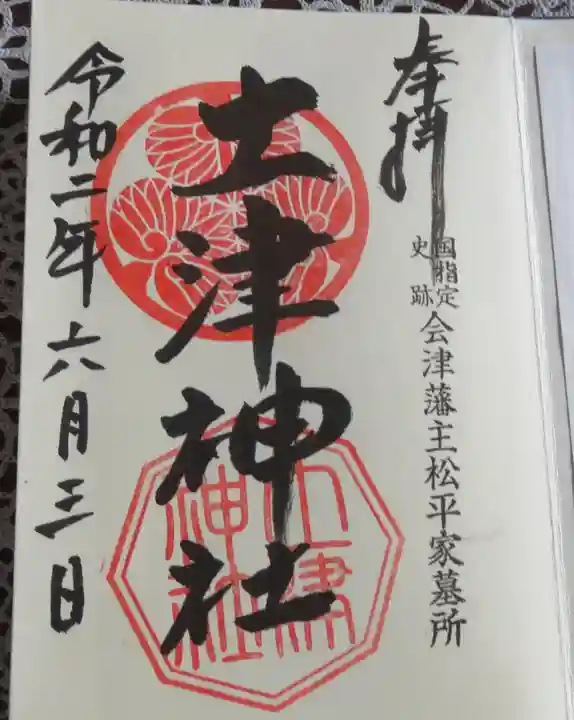 奉拝
国指定史跡 会津藩主松平家墓所
土津神社
土津神社
令和二年六月三日